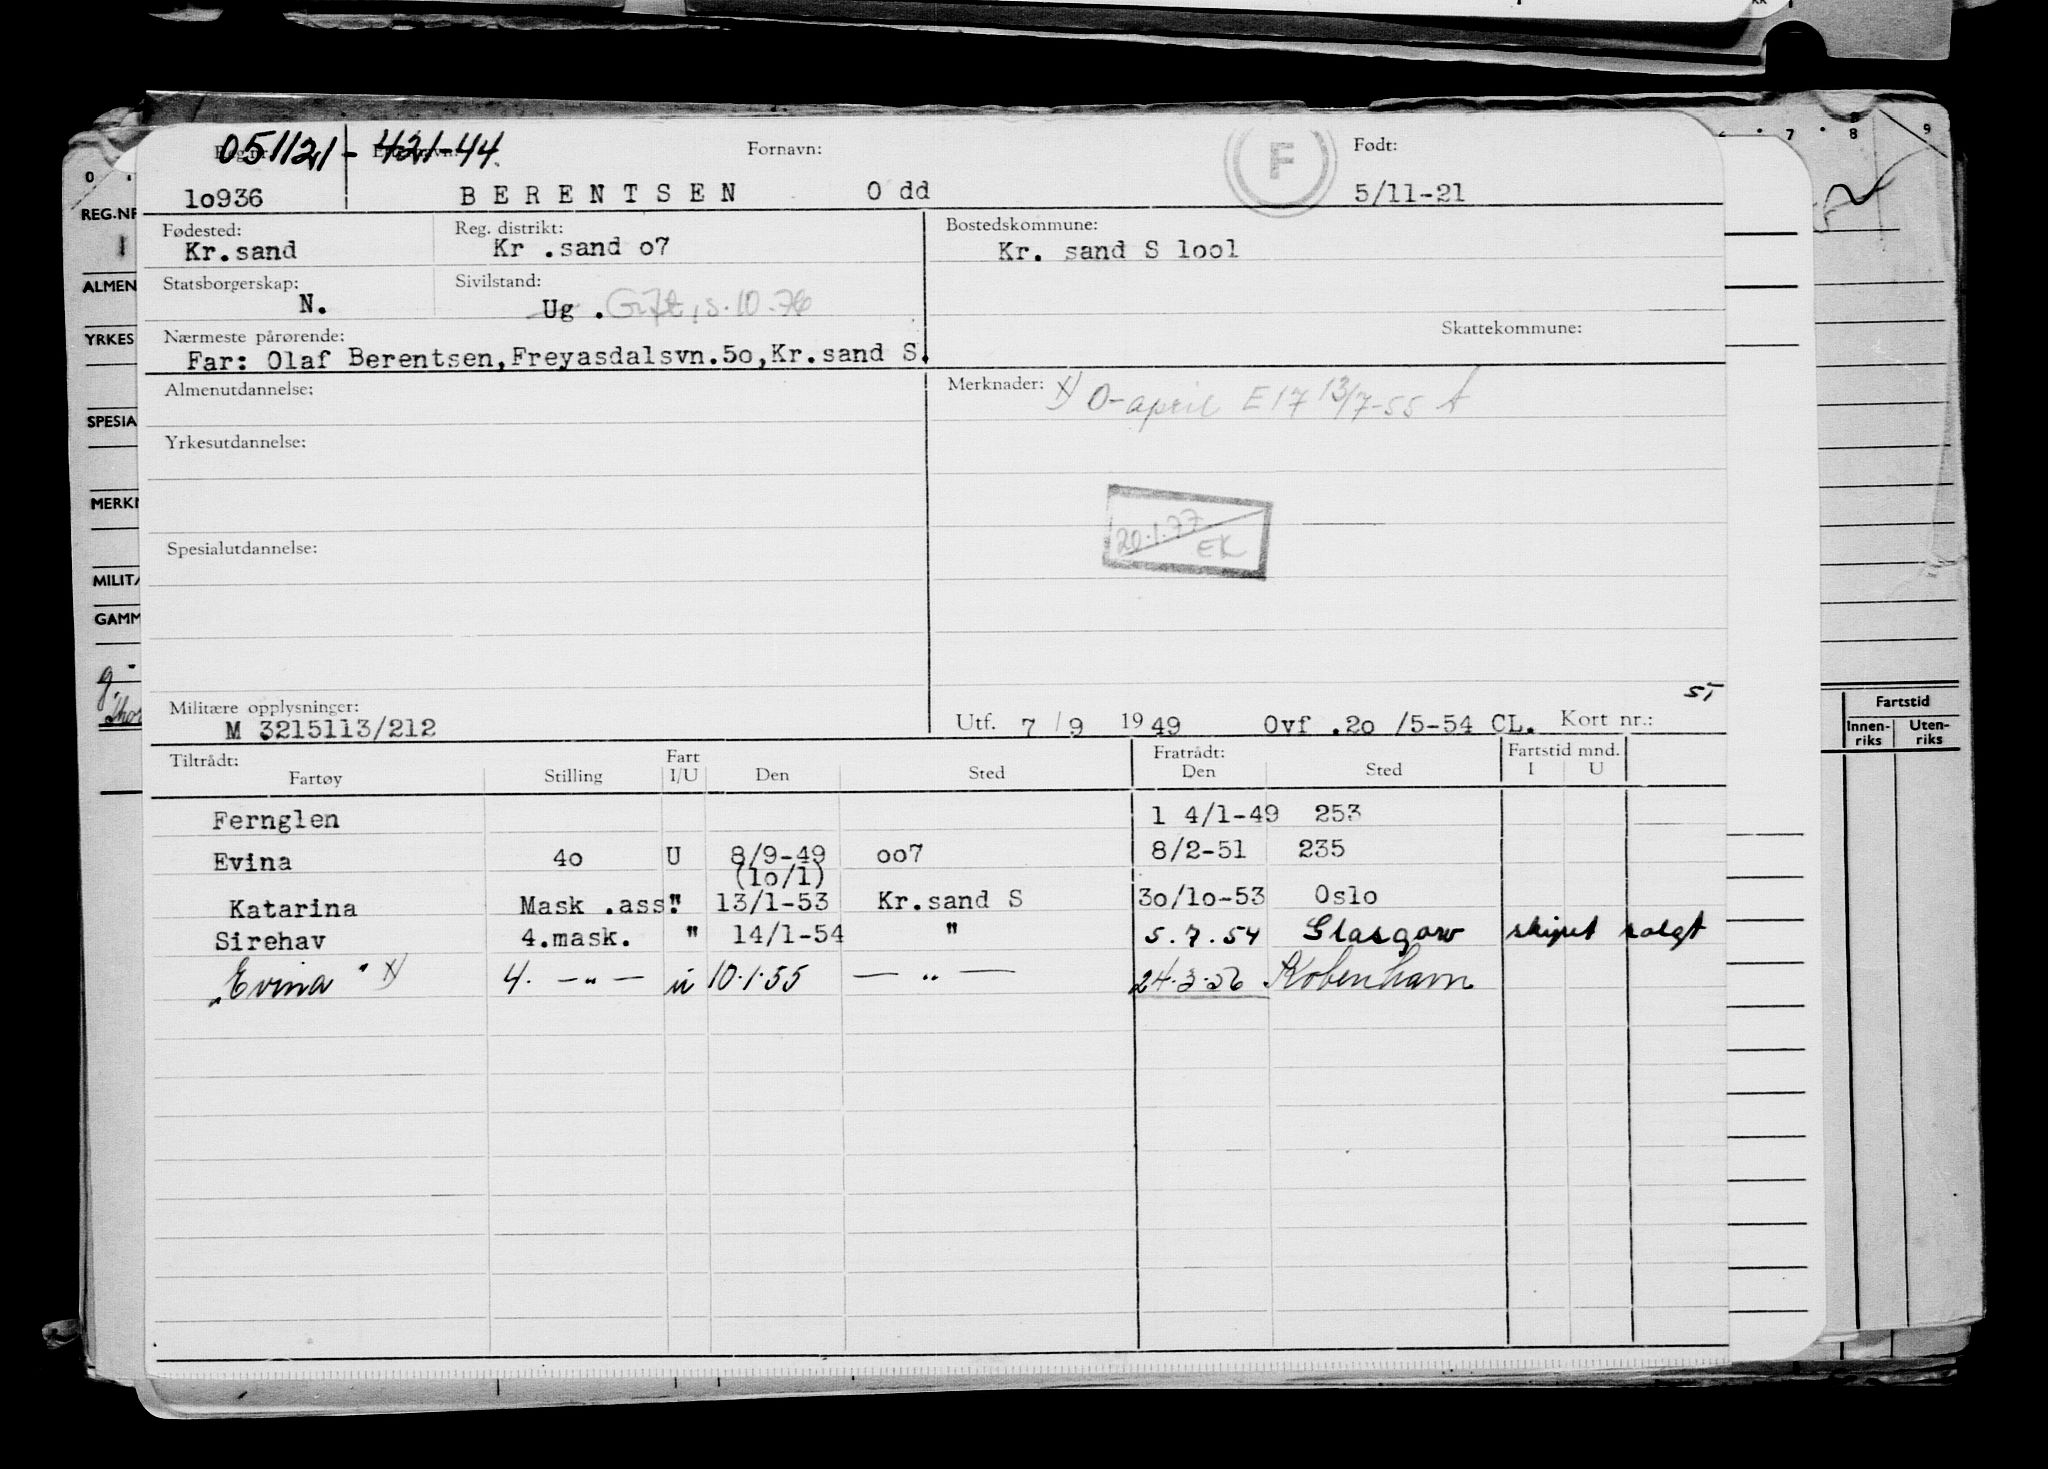 051121-421-44.
Fornavn: F Født:
10936 BERENTSEN Odd 5/11-21
Fødested: Reg. distrikt: Bostedskommune:
Kr.sand Kr .sand o7 Kr. sand S lool
Statsborgerskap: Sivilstand:
N. Ug . Gift, s.10.76
Nærmeste pårørende: Skattekommune:
Far: Olaf Berentsen,Freyasdalsvn.5o,Kr.sand S.
Almenutdannelse: Merknader: x) O-april E17 13/7-55
Yrkesutdannelse:
20.1.77 EK
Spesialutdannelse:
Militære opplysninger: ST
M 3215113/212 Utf. 7/9 1949 Ovf .2o /5-54 CL. Kort nr.:
Tiltrådt: Fart Fratrådt: Fartstid mnd.
Fartøy Stilling I/U Den Sted Den Sted I U
Fernglen 1 4/1-49 253
Evina 4o U 8/9-49 oo7 8/2-51 235
(lo/1)
Katarina Mask .ass. " 13/1-53 Kr.sand S 3o/1o-53 Oslo
Sirehav 4.mask. " 14/1-54 " 5.7.54 Glasgow skipet solgt
"Evina" x) 4. -"- u 10.1.55 -"- 24.3.56 København
REG.NR
ALMEN
YRKES
SPESIA
MERKN
MILITÆ
GAMM
0 7 8 9
Fartstid
Innen-riks Uten-riks